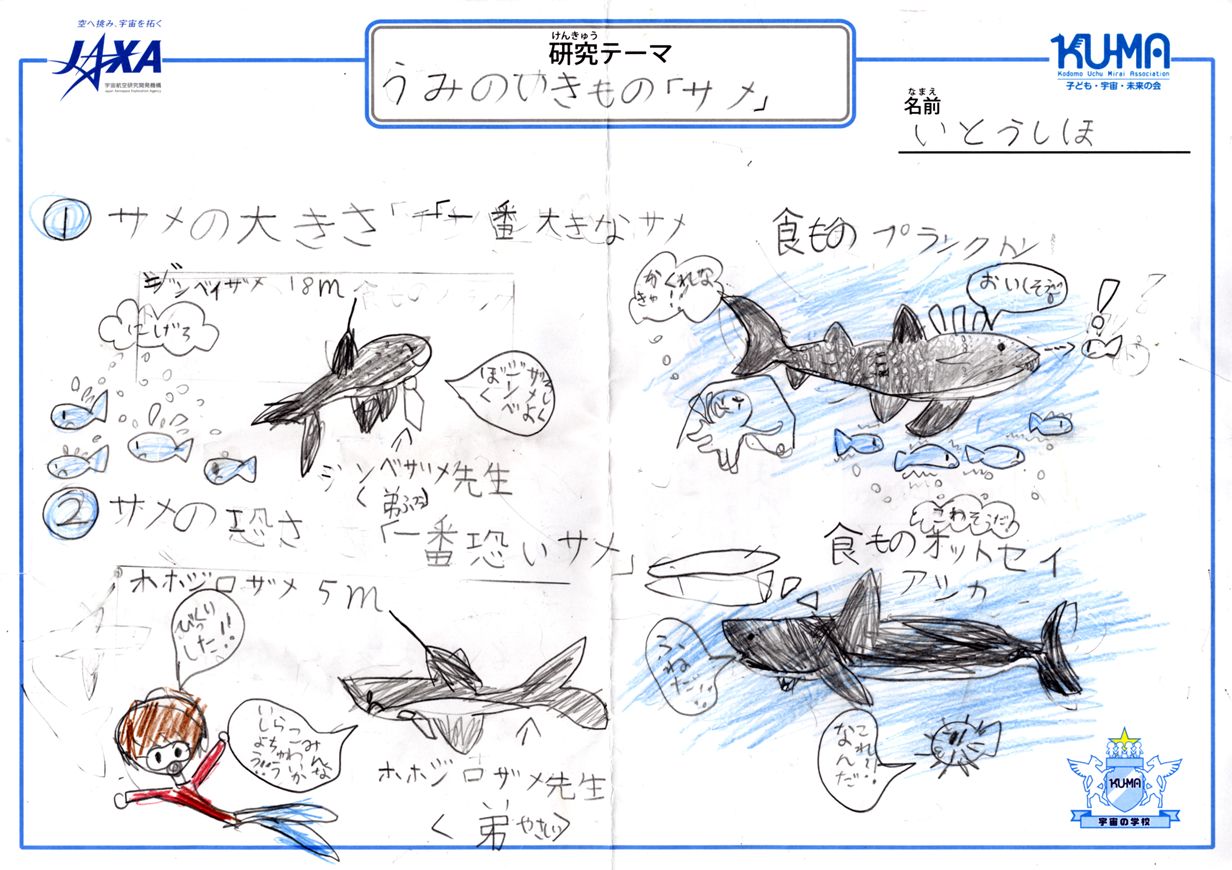 空へ挑み、宇宙を拓く
JAXA
宇宙航空研究開発機構
Japan Aerospace Exploration Agency
けんきゅう
研究テーマ
うみのいきもの「サメ」
KU-MA
Kodomo Uchu Mirai Association
子ども・宇宙・未来の会
なまえ
名前
いとうしほ
① サメの大きさ「一番大きなサメ
ジンベイザメ 18m
にげろ
ジンベザメ先生
食もの プランクトン
かくれな
きゃ!
おいしそう
② サメの恐さ 「一番恐いサメ」
ホホジロザメ 5m
びっくり
した!!
みんな
こわいか
らちゅう
いしよう
ホホジロザメ先生
こわそうだ
食もの オットセイ
アシカ
ふねだ!!
これて
なんだ
KUMA
宇宙の学校